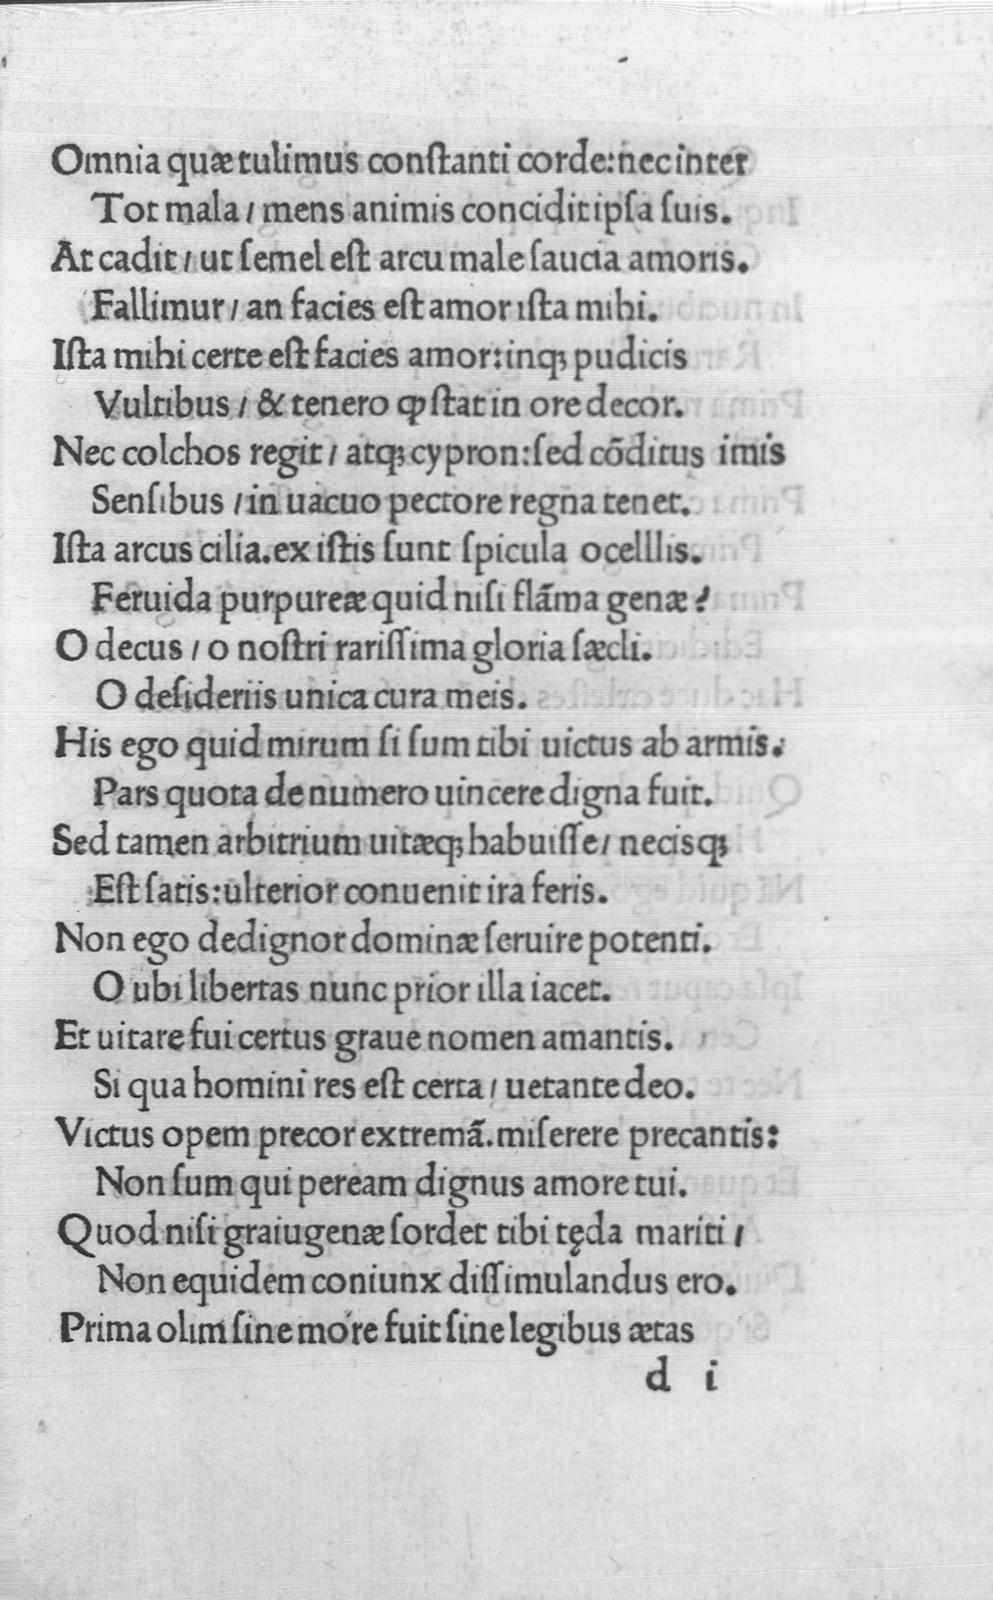 Omnia quæ tulimus conſtanti corde: nec inter
Tot mala / mens animis concidit ipſa ſuis.
At cadit / ut ſemel eſt arcu male ſaucia amoris.
Fallimur / an facies eſt amor iſta mihi.
Iſta mihi certe eſt facies amor: inqꝫ pudicis
Vultibus / & tenero ꝙ ſtat in ore decor.
Nec colchos regit / atqꝫ cypron: ſed cōditus imis
Senſibus / in uacuo pectore regna tenet.
Iſta arcus cilia. ex iſtis ſunt ſpicula ocelllis.
Feruida purpureæ quid niſi flāma genæ?
O decus / o noſtri rariſſima gloria ſæcli.
O deſideriis unica cura meis.
His ego quid mirum ſi ſum tibi uictus ab armis.
Pars quota de numero uincere digna fuit.
Sed tamen arbitrium uitæqꝫ habuiſſe / necisqꝫ
Eſt ſatis: ulterior conuenit ira feris.
Non ego dedignor dominæ ſeruire potenti.
O ubi libertas nunc prior illa iacet.
Et uitare fui certus graue nomen amantis.
Si qua homini res eſt certa / uetante deo.
Victus opem precor extremā. miſerere precantis:
Non ſum qui peream dignus amore tui.
Quod niſi graiugenæ ſordet tibi tęda mariti /
Non equidem coniunx diſſimulandus ero.
Prima olim ſine more fuit ſine legibus ætas
d i